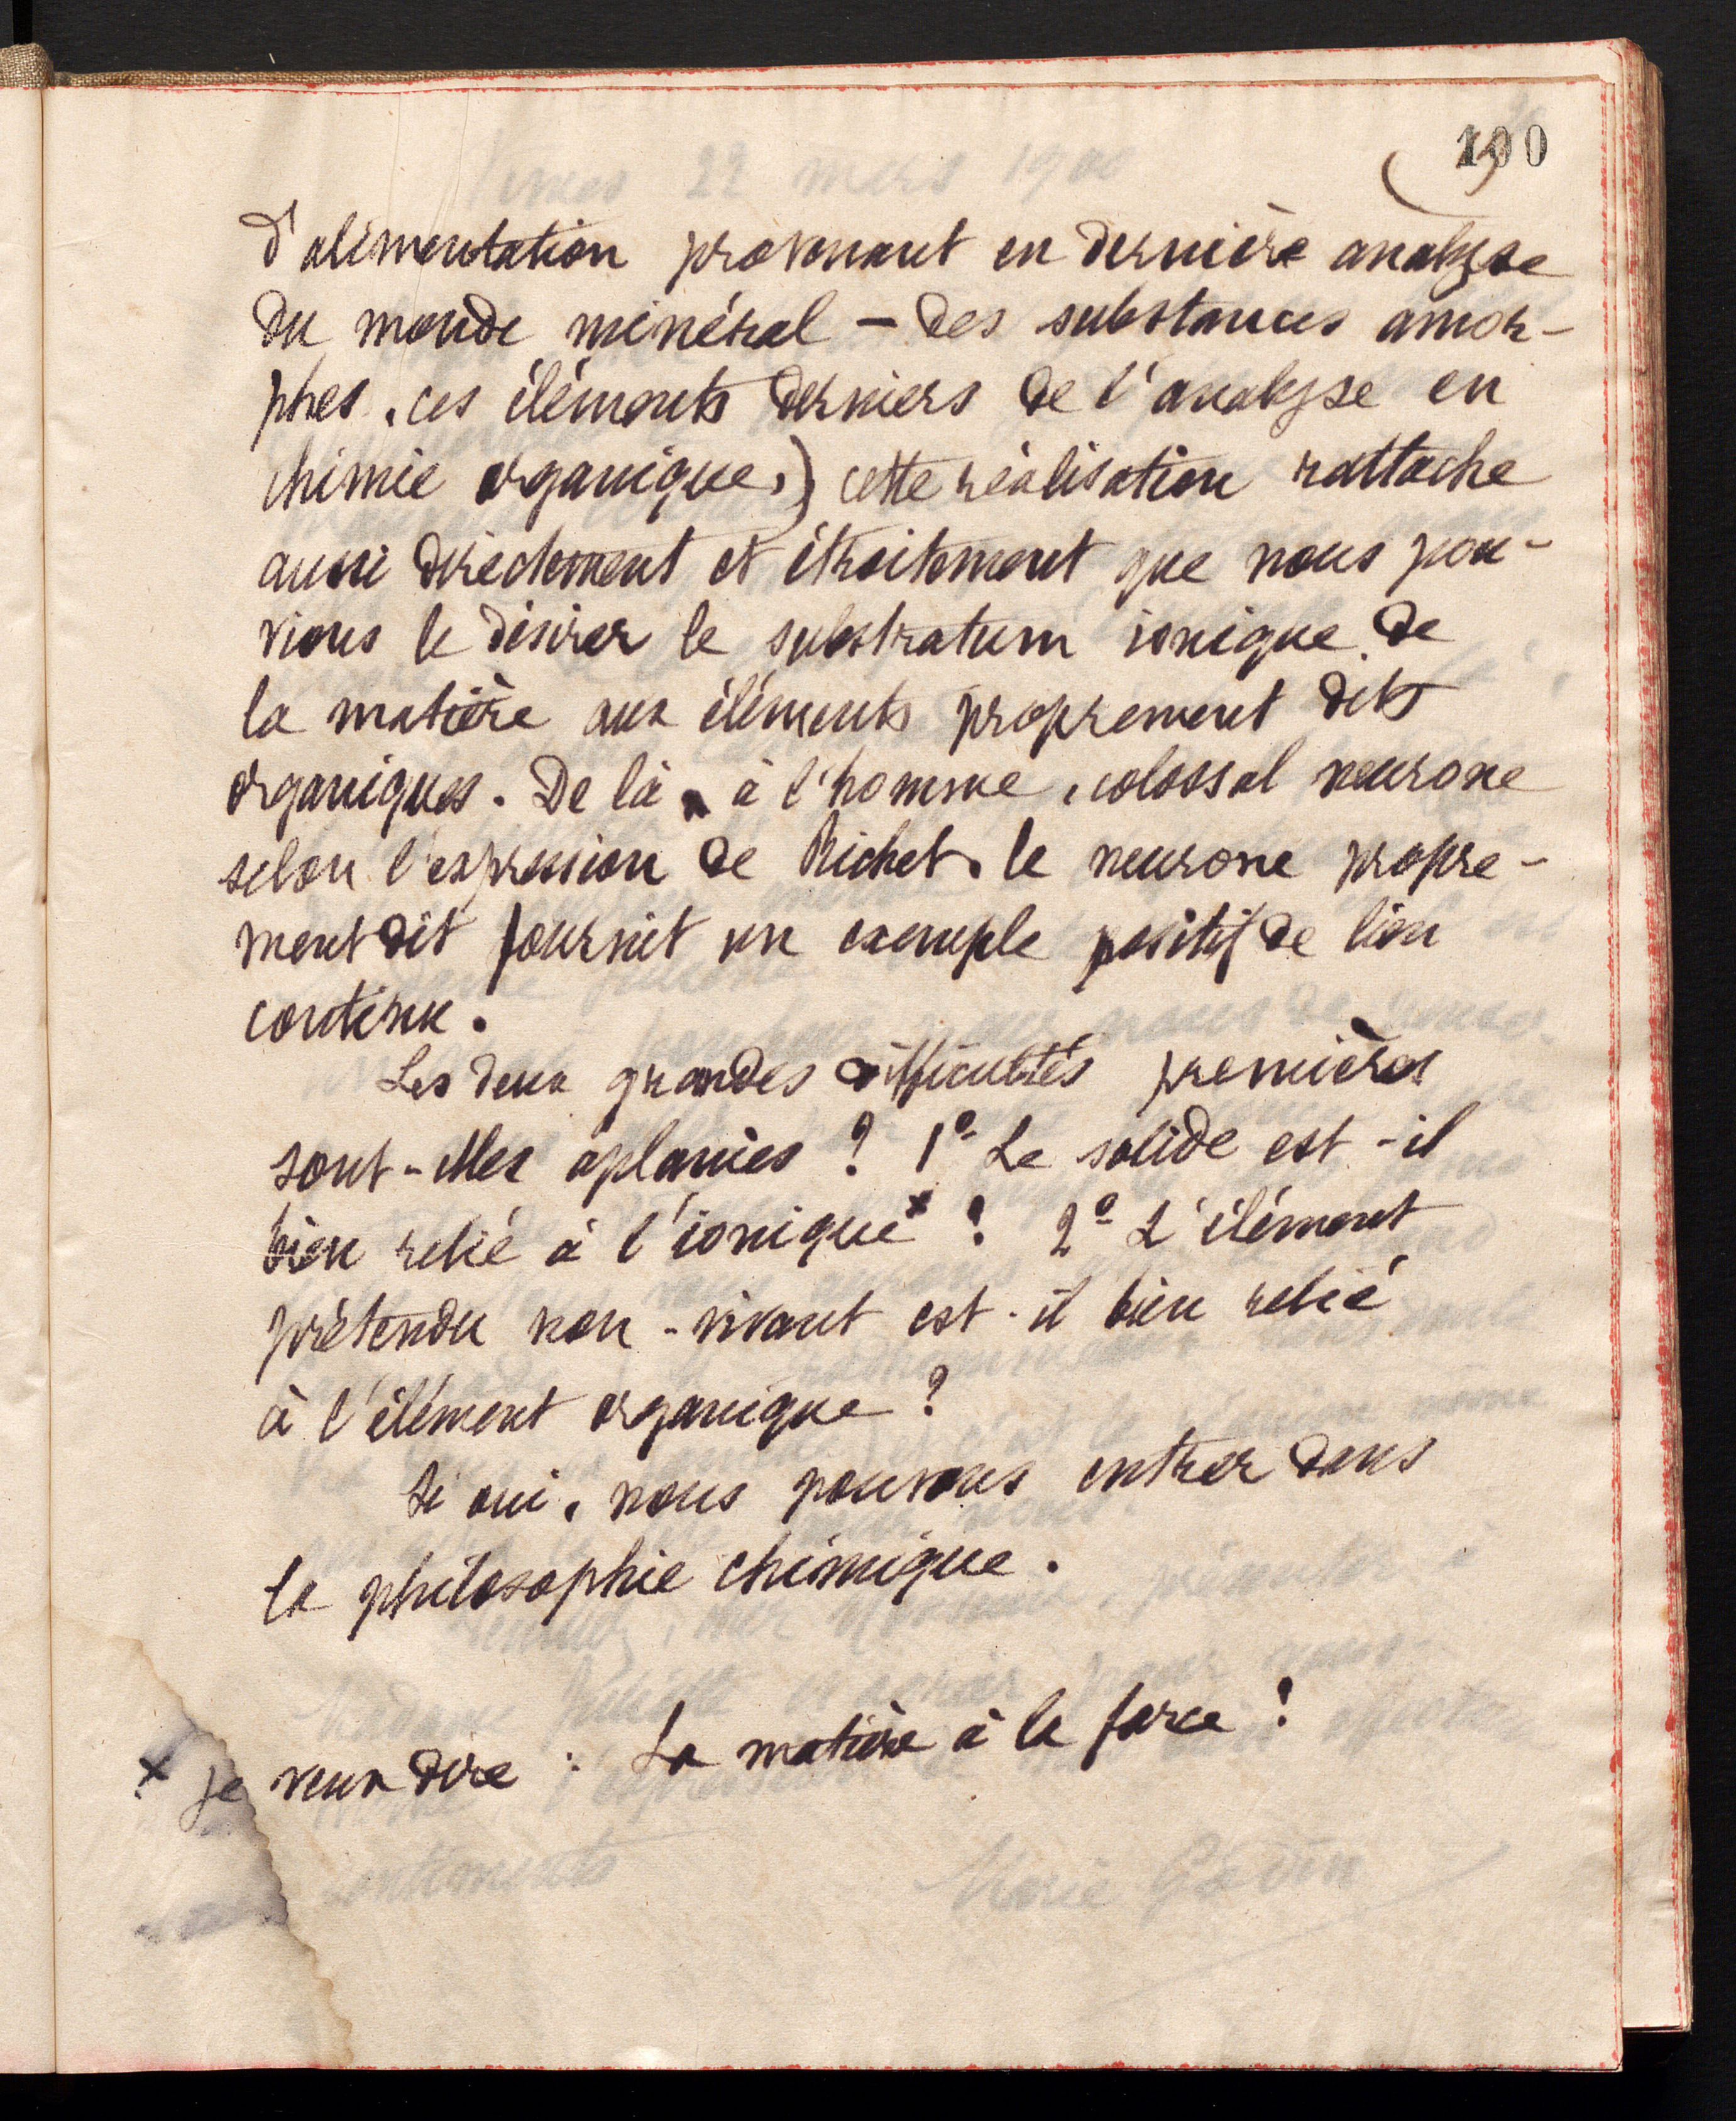 100
d'alimentation provenant en dernière analyse
du monde minéral – des substances amor-
phes, ces éléments derniers de l'analyse en
chimie organique,) cette réalisation rattache
aussi directement et étroitement que nous pou-
vions le désirer le substratum ionique de
la matière aux éléments proprement dits
organiques. De là à l'homme, colossal neurone
selon l'expression de Richet, le neurone propre-
ment dit fournit un exemple positif de lien
continu.
Les deux grandes difficultés premières
sont-elles aplanies ? 1º Le solide est-il
bien relié à l'ionique x ? 2º L'élément
prétendu non-vivant est-il bien relié
à l'élément organique ?
Si oui, nous pouvons entrer dans
la philosophie chimique.
x je veux dire : La matière à la force ?